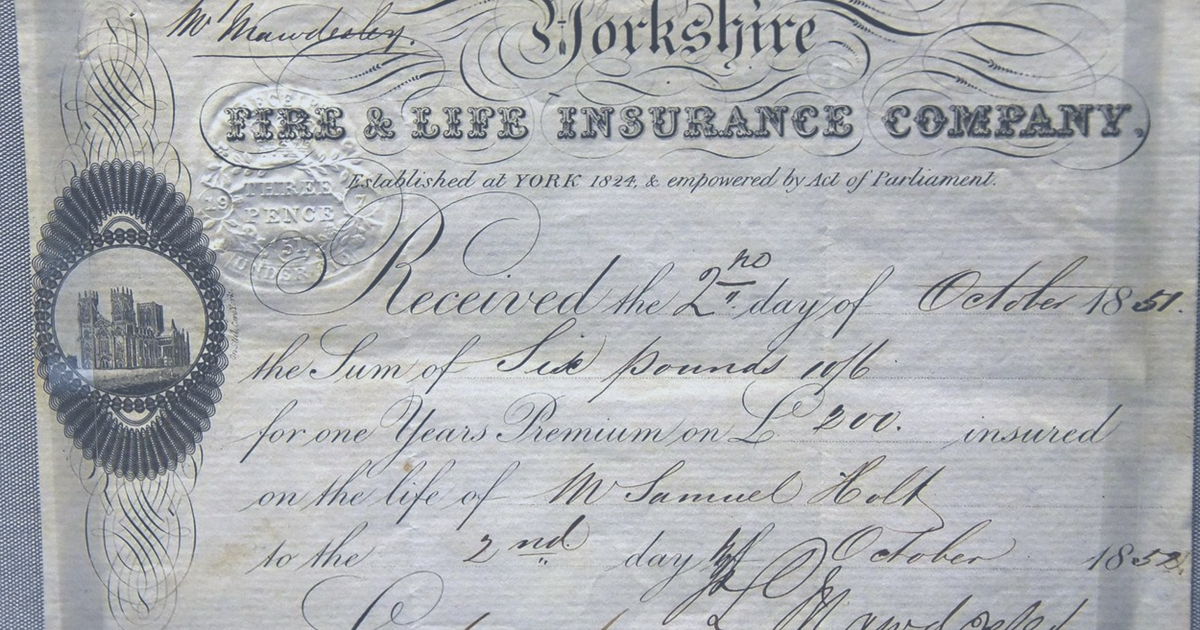 Mr Mawdesley.
Yorkshire
FIRE & LIFE INSURANCE COMPANY,
Established at YORK 1824, & empowered by Act of Parliament.
THREE
PENCE
Received the 2nd day of October 1851.
the Sum of Six pounds 10/6
for one Years Premium on £ 200. insured
on the life of Mr Samuel Holt
to the 2nd day of October 1852.